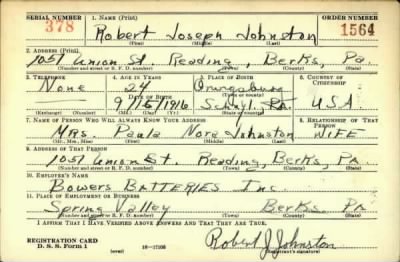 SERIAL NUMBER 1. NAME (Print) ORDER NUMBER
378 Robert Joseph Johnston 1564
(First) (Middle) (Last)
2. ADDRESS (Print)
1051 Union St. Reading, Berks, Pa.
(Number and street or R. F. D. number) (Town) (County) (State)
3. TELEPHONE 4. AGE IN YEARS 5. PLACE OF BIRTH 6. COUNTRY OF CITIZENSHIP
None 24 Orwigsburg
DATE OF BIRTH (Town or county)
9/15/1916 Schyl. Pa. USA
(Exchange) (Number) (Mo.) (Day) (Yr.) (State or country)
7. NAME OF PERSON WHO WILL ALWAYS KNOW YOUR ADDRESS 8. RELATIONSHIP OF THAT PERSON
Mrs. Paula Nora Johnston WIFE
(Mr., Mrs., Miss) (First) (Middle) (Last)
9. ADDRESS OF THAT PERSON
1051 Union St. Reading, Berks, PA
(Number and street or R. F. D. number) (Town) (County) (State)
10. EMPLOYER'S NAME
Bowers BATTERIES Inc.
11. PLACE OF EMPLOYMENT OR BUSINESS
Spring Valley Berks. PA
(Number and street or R. F. D. number) (Town) (County) (State)
I AFFIRM THAT I HAVE VERIFIED ABOVE ANSWERS AND THAT THEY ARE TRUE.
REGISTRATION CARD Robert J Johnston
D. S. S. Form 1 (over) 16—17105 (Registrant's signature)